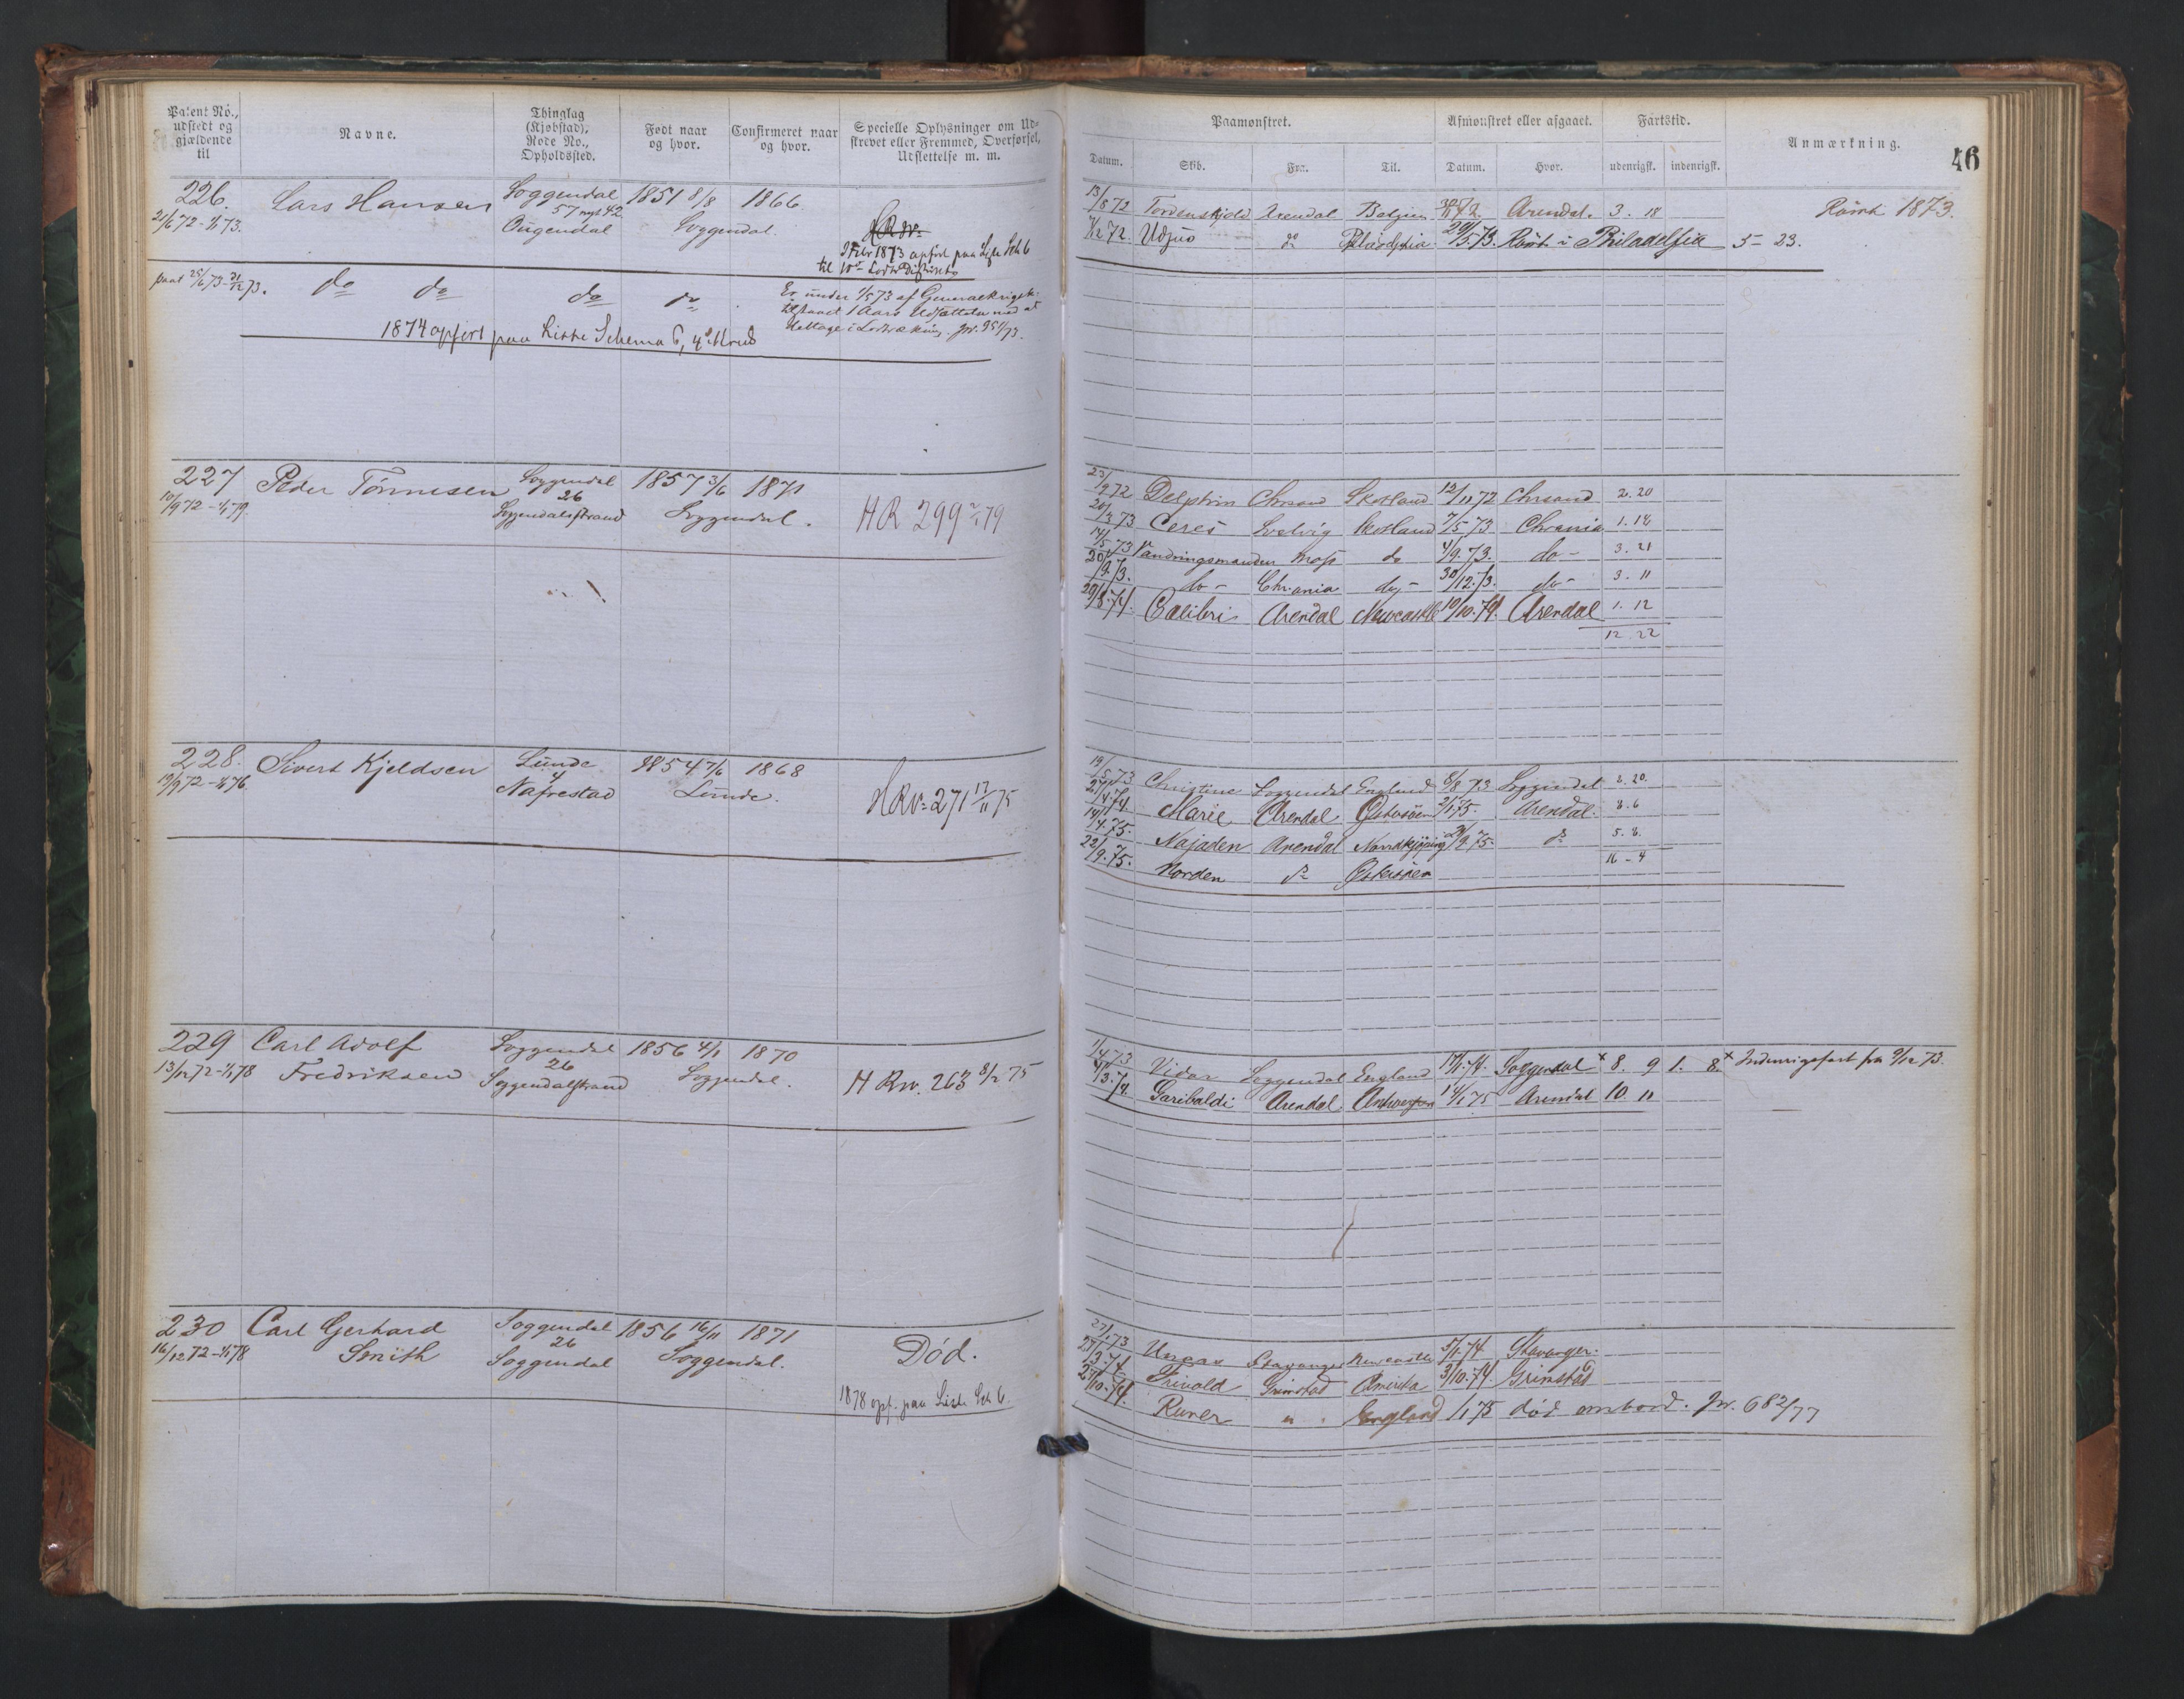 Patent No., udstedt og gjældende til
Navne.
Thinglag (Kjøbstad), Rode No., Opholdssted.
Født naar og hvor.
Confirmeret naar og hvor.
Specielle Oplysninger om Udskrevet eller Fremmed, Overførsel, Udslettelse m. m.
226. Lars Hansen Soggendal 1851 8/8 1866
21/6 72 - 1/1 73. 57 nyt 42 Ougendal Soggendal.
HRw.
Febr 1873 opført paa Liste Sch 6
til
paat 25/6 73 - 31/12 73. do do do do
Er under 1/5 73 af Generalkrigsk.
tilstaaet 1 Aars Udsættelse med at
deltage i Lodtrækning. Jr. 951/73.
1874 opført paa Liste Schema 6,
227 Peder Tönnesen Soggendal 1857 3/6 1871
10/9 72 - 1/1 79. 26 Soggendalsstrand Soggendal. HR 299 2/1 79
228. Sivert Kjeldsen Lunde 1854 7/6 1868
19/9 72 - 1/1 76. 4 Nafrestad Lunde. HRv: 271 17/11 75
229 Carl Adolf Soggendal 1856 4/1 1870
13/12 72 - 1/1 78 Fredriksen 26 Soggendalsstrand Soggendal. HRw. 263 8/2 75
230 Carl Gerhard Soggendal 1856 16/11 1871
16/12 72 - 1/1 78 Smith 26 Soggendal Soggendal. Død.
1878 opf. paa Liste Sch 6.
Paamønstret.
Afmønstret eller afgaaet.
Fartstid.
Anmærkning.
46
Datum. Skib. Fra. Til. Datum. Hvor. udenrigsk. indenrigsk.
13/8 72 Tordenskjold Arendal Belgien 72. Arendal. 3. 18 Römt 1873.
7/12 72. do Philadelphia 29/5 73. Römt i Philadelfia 5 - 23.
23/9 72 Delphin Chrsand Skotland 12/11 72 Chrsand 2. 20
20/3 73 Ceres Skotland 7/5 73 Chrania 1. 18
14/5 73 Vandringsmanden Moss do 4/9. 73. do - 3. 21
20/9. 73. do - Chrania do - 30/12. 73. do - 3. 11
29/8. 74. Colibri Arendal Newcastle 10/10. 74. Arendal 1. 12
12. 22
19/5 73 Christine Soggendal England 8/8 73 Soggendal 2. 20.
2/4 74 Marie Arendal Østersöen 2/1 75. Arendal. 8. 6
14/4. 75. Najaden Arendal Norrdkjöping 21/9. 75. do 5. 8.
22/9. 75. Norden do Østersöen 16 - 4
1/4 73 Vidar Soggendal England 17/1. 74. Soggendal × 8. 9 1. 8. × Indenrigsfart fra 9/12 73.
4/3. 74. Garibaldi Arendal Antwerpen 14/1 75 Arendal 10. 11
27/1 73 Stavanger Newcastle 5/1. 74 Stavanger.
23/3 74 Frivold Grimstad Amerika 3/10. 74. Grimstad
27/10. 74. Runer " England 1/1 75 død ombord. Jr. 682/77